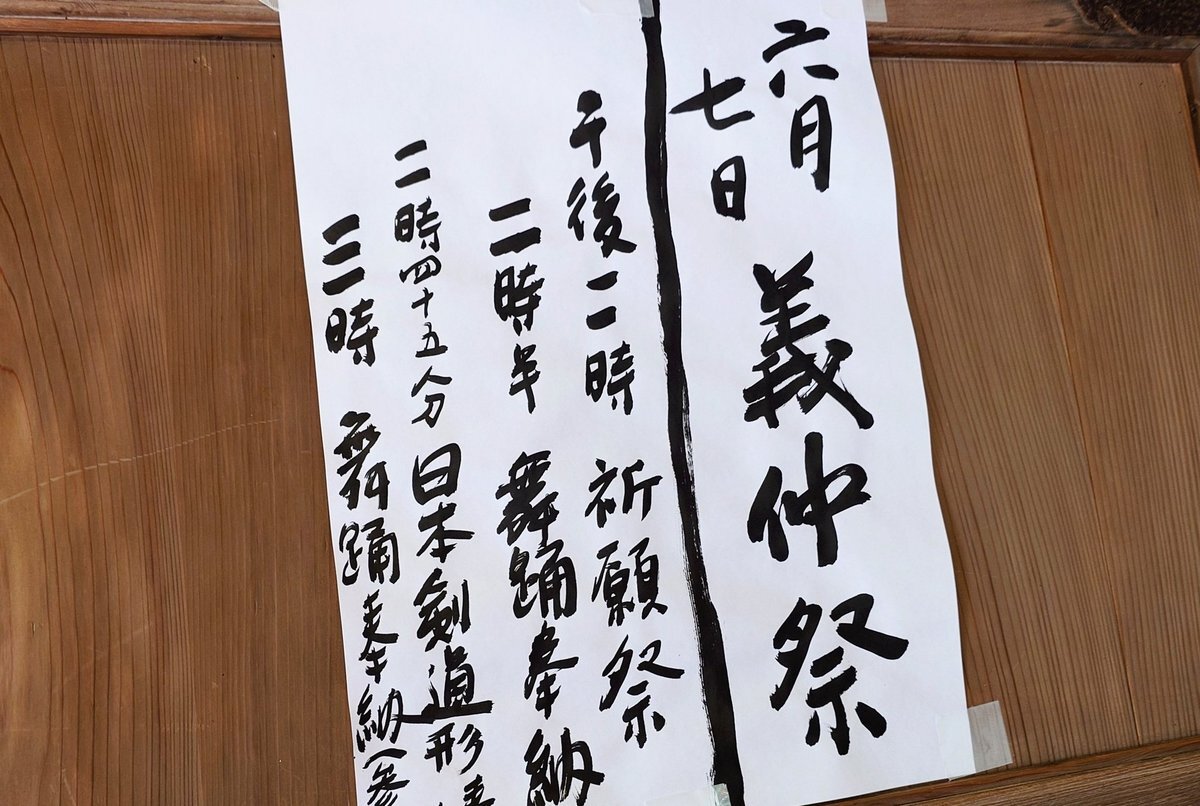 六月
七日
義仲祭
午後二時 祈願祭
二時半 舞踊奉納
二時四十五分 日本剣道形
三時 舞踊奉納